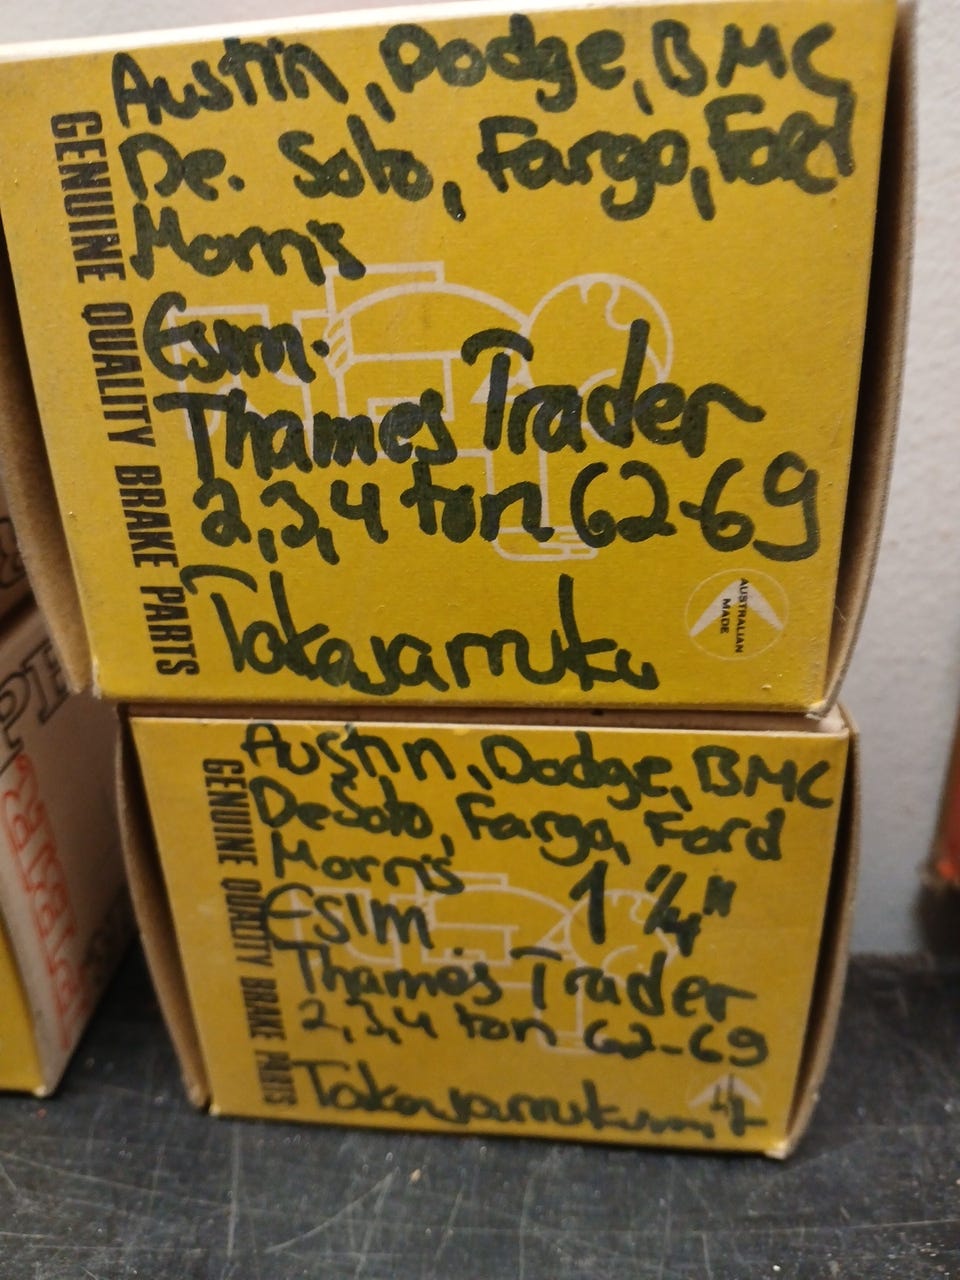 Austin, Dodge, BMC
De. Soto, Fargo, Ford
Morris
Esim.
Thames Trader
2,3,4 ton 62-69
Takajarruku
GENUINE QUALITY BRAKE PARTS
AUSTRALIAN
MADE
Austin, Dodge, BMC
DeSoto, Fargo, Ford
Morris
1 1/4"
Esim
Thames Trader
2,3,4 ton 62-69
Takajarrukumit
GENUINE QUALITY BRAKE PARTS